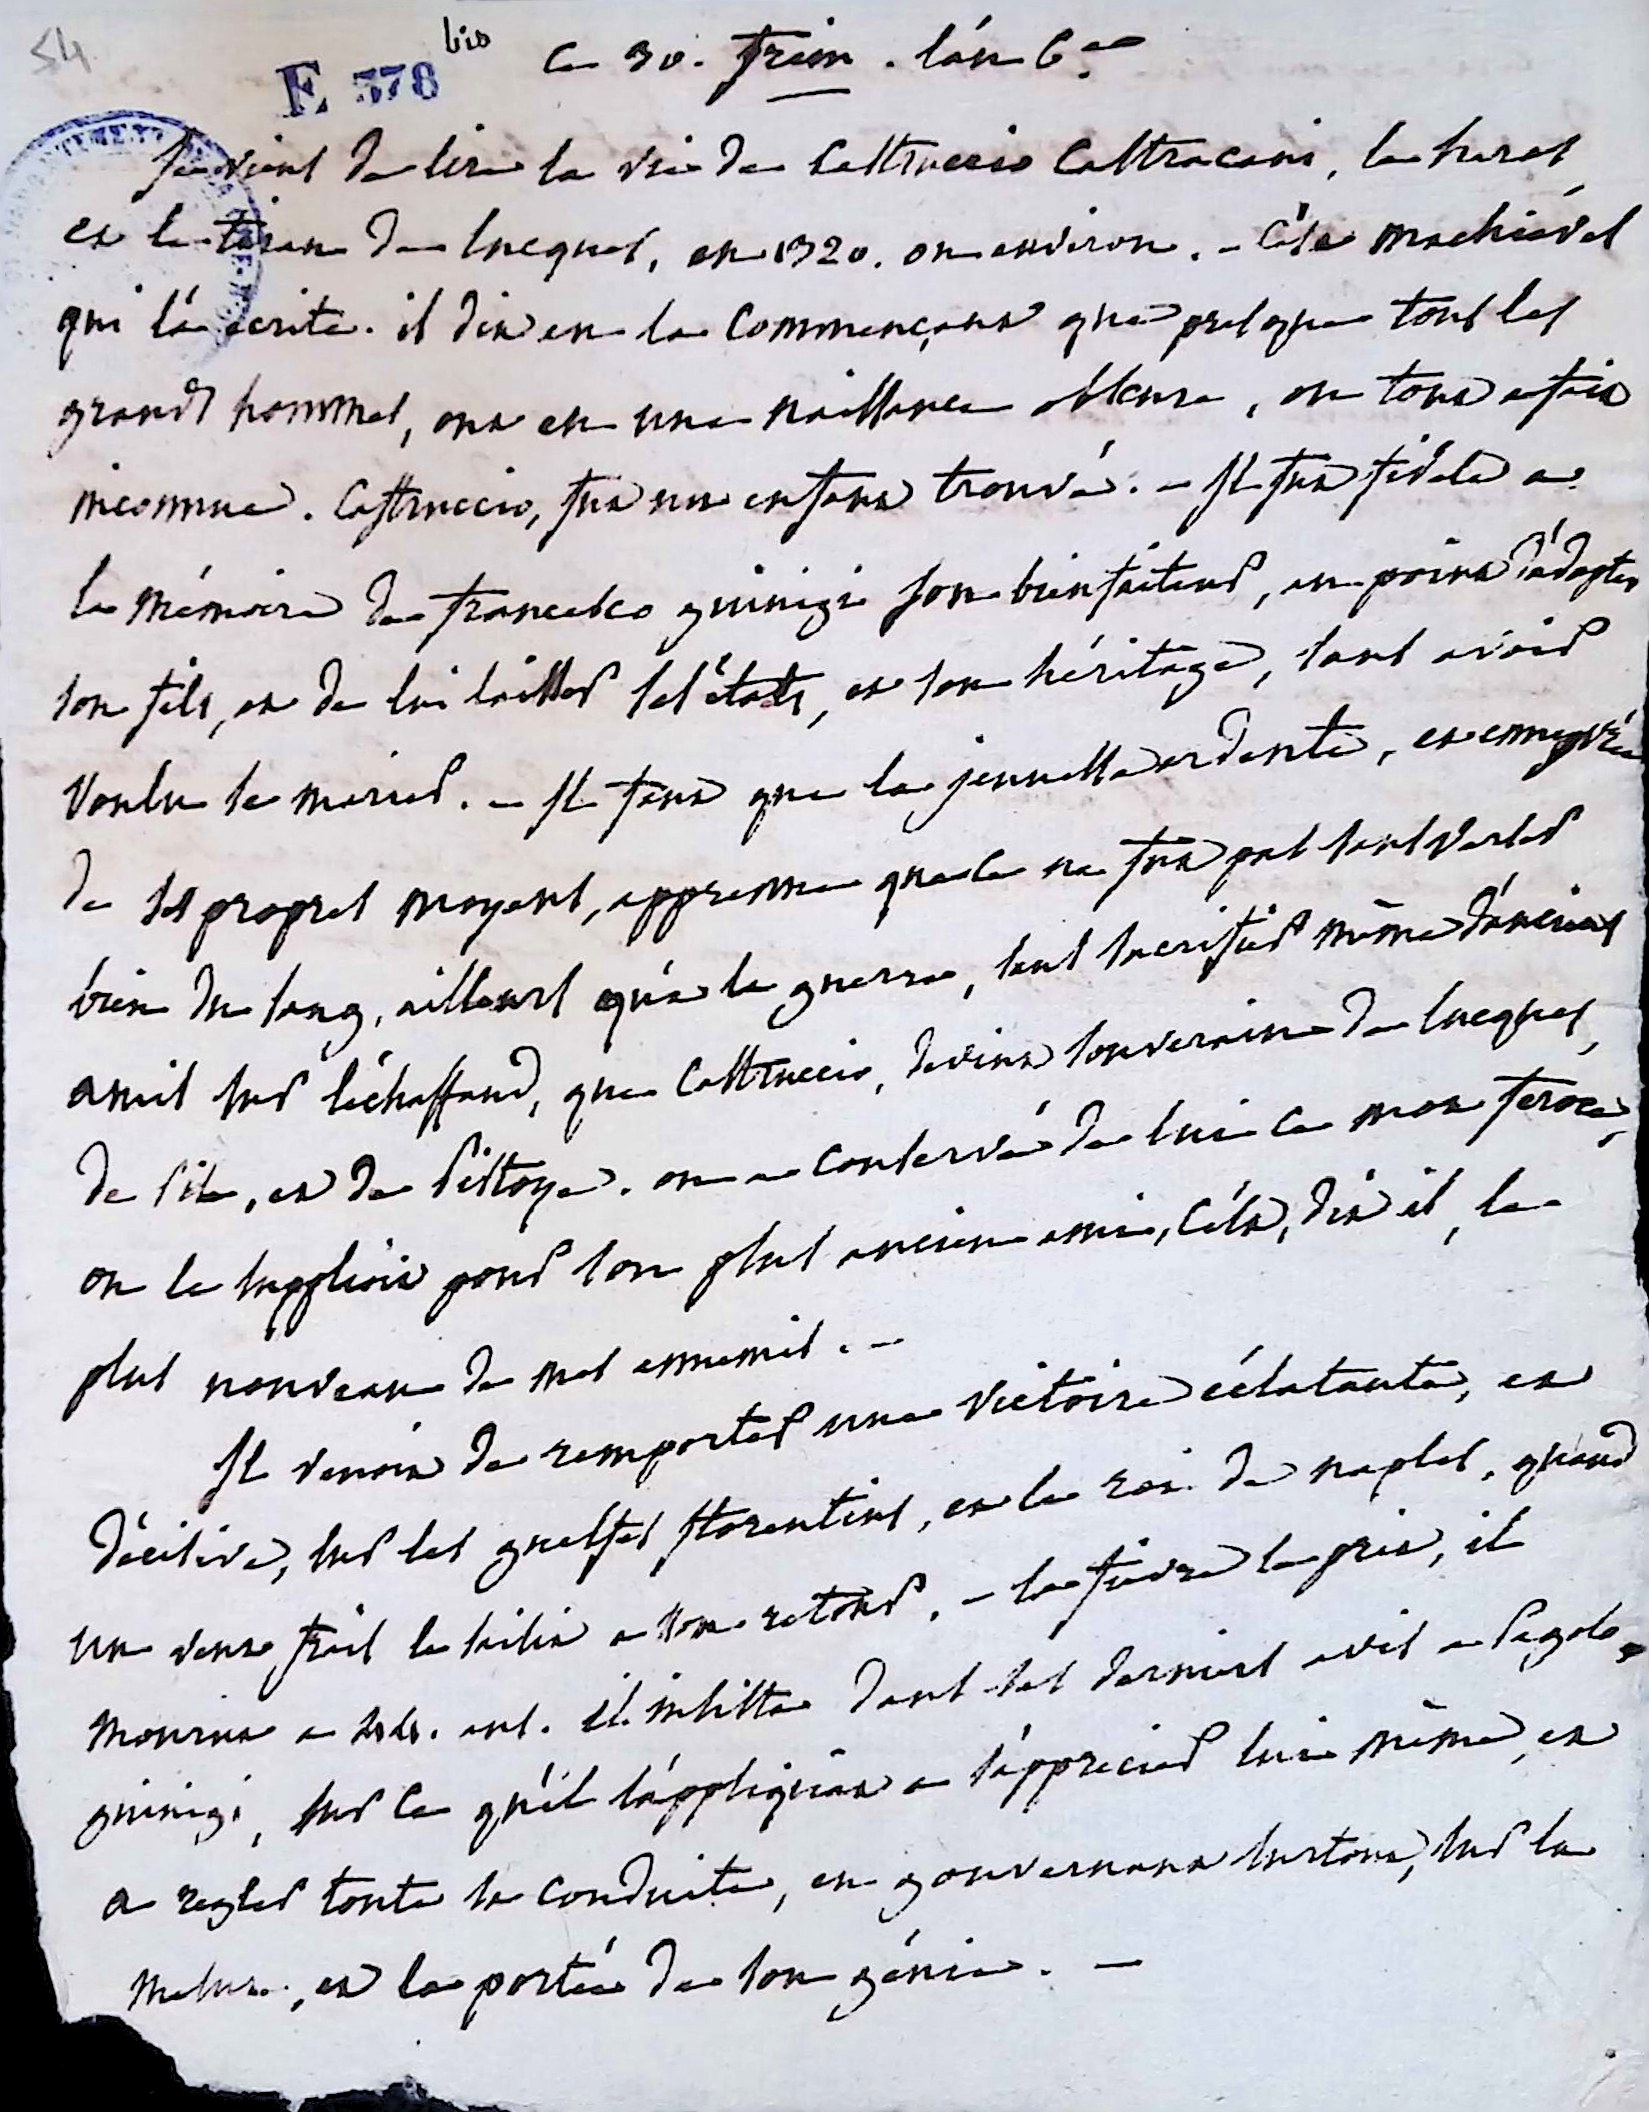 54
E 378 bis
Ce 30. frim. l'an 6.e
Je viens de lire la vie de Castruccio Castracani, le heros
et le tiran de lucques, en 1320. ou environ. - C'est machiavel
qui l'a écrite. il dit en la commençant que presque tous les
grands hommes, ont eu une naissance obscure, ou tout a fait
inconnue. Castruccio, fut un enfant trouvé. - Il fut fidele a
la mémoire de francesco guinigi son bienfaiteur, au point d'adopter
son fils, et de lui laisser ses états, et son héritage, sans avoir
voulu se marier. - Il faut que la jeunesse ardente, et enivrée
de ses propres moyens, apprenne que ce ne fut pas sans verser
bien du sang, ailleurs qu'a la guerre, sans sacrifier même d'anciens
amis sur l'échaffaud, que Castruccio, devint souverain de lucques,
de Pise, et de Pistoye. on a conservé de lui ce mot feroce,
on le supplioit pour son plus ancien ami, c'est, dit il, le
plus nouveau de mes ennemis. -
Il venoit de remporter une victoire éclatante, et
décisive, sur les guelfes florentins, et le roi de naples, quand
un vent frais le saisit a son retour. - la fievre le prit, il
mourut a 44. ans. il insista dans ses derniers avis a Pagolo
guinigi, sur ce qu'il s'appliquat a s'apprecier lui même, et
a regler toute sa conduite, en gouvernant surtout, sur la
mesure, et la portée de son génie. -